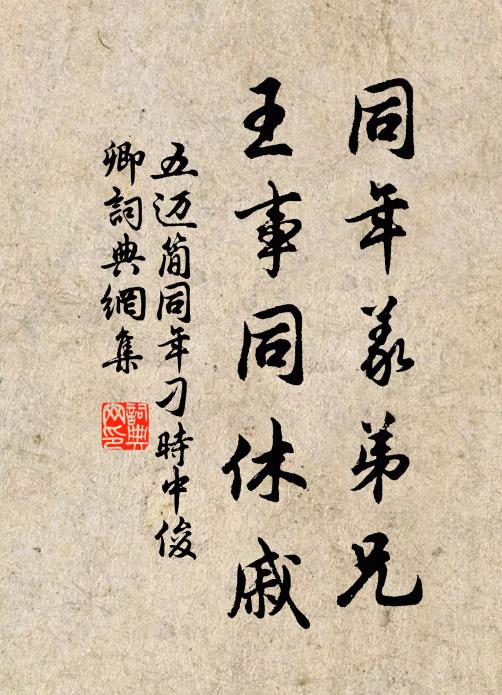 同年義弟兄
王事同休戚
五迈简同年刁時中俊
卿詞典網集
詞典网印